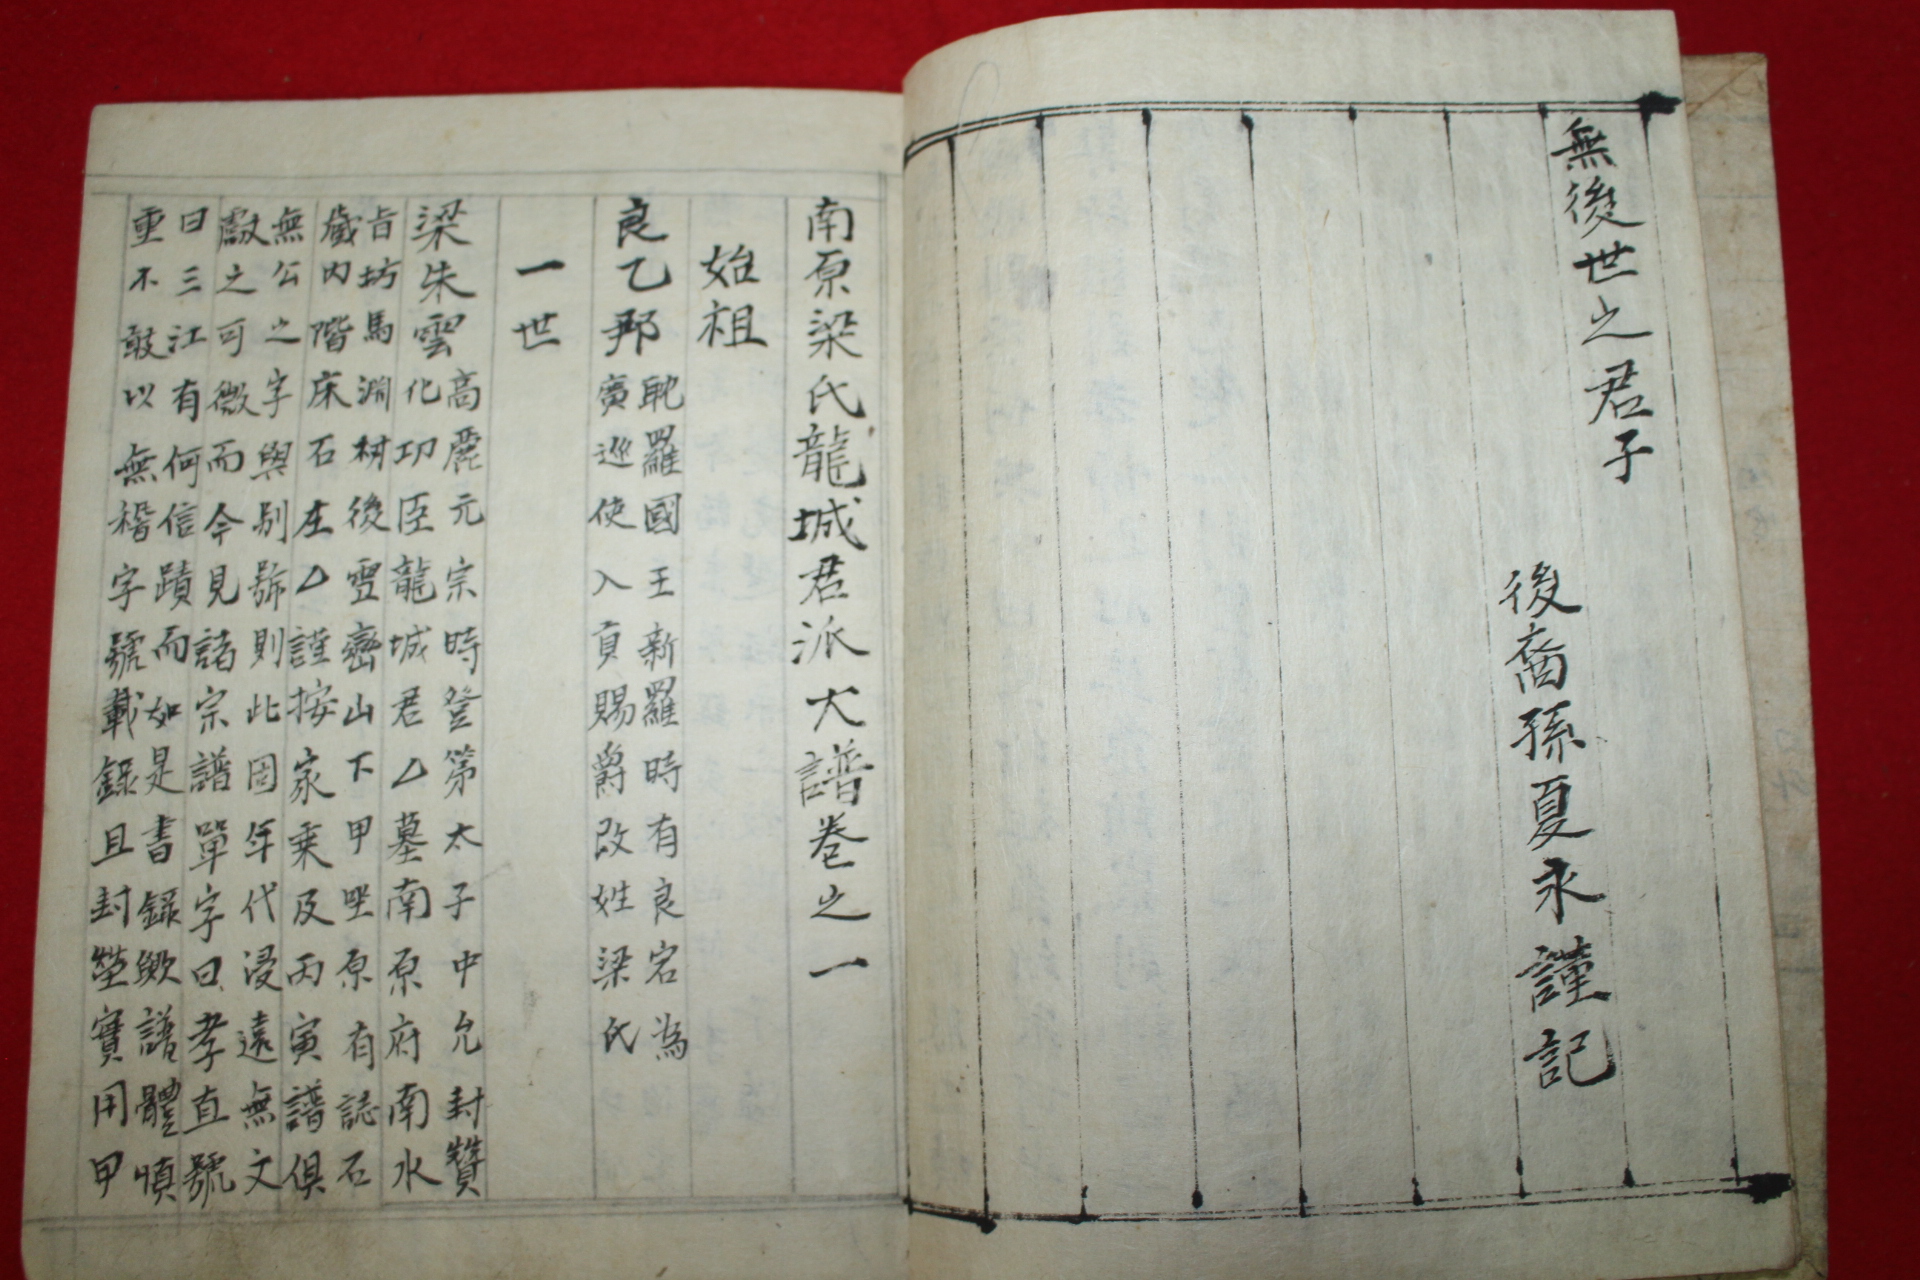 無後世之君子
後裔孫夏永謹記
南原梁氏龍城君派大譜卷之一
始祖
良乙那
耽羅國王新羅時有良宕為
廣巡使入貢賜爵改姓梁氏
一世
梁朱雲
高麗元宗時登第太子中允封贊
化功臣龍城君△墓南原府南水
旨坊馬淵村後雪巒山下甲坐原有誌石
歲內階床石左△謹按家乘及丙寅譜俱
無公之字與別號則此固年代浸遠無文
獻之可徵而今見諸宗譜單字曰孝直號
曰三江有何信蹟而如是書錄歟譜體慎
重不敢以無稽字號載錄且封塋實用甲